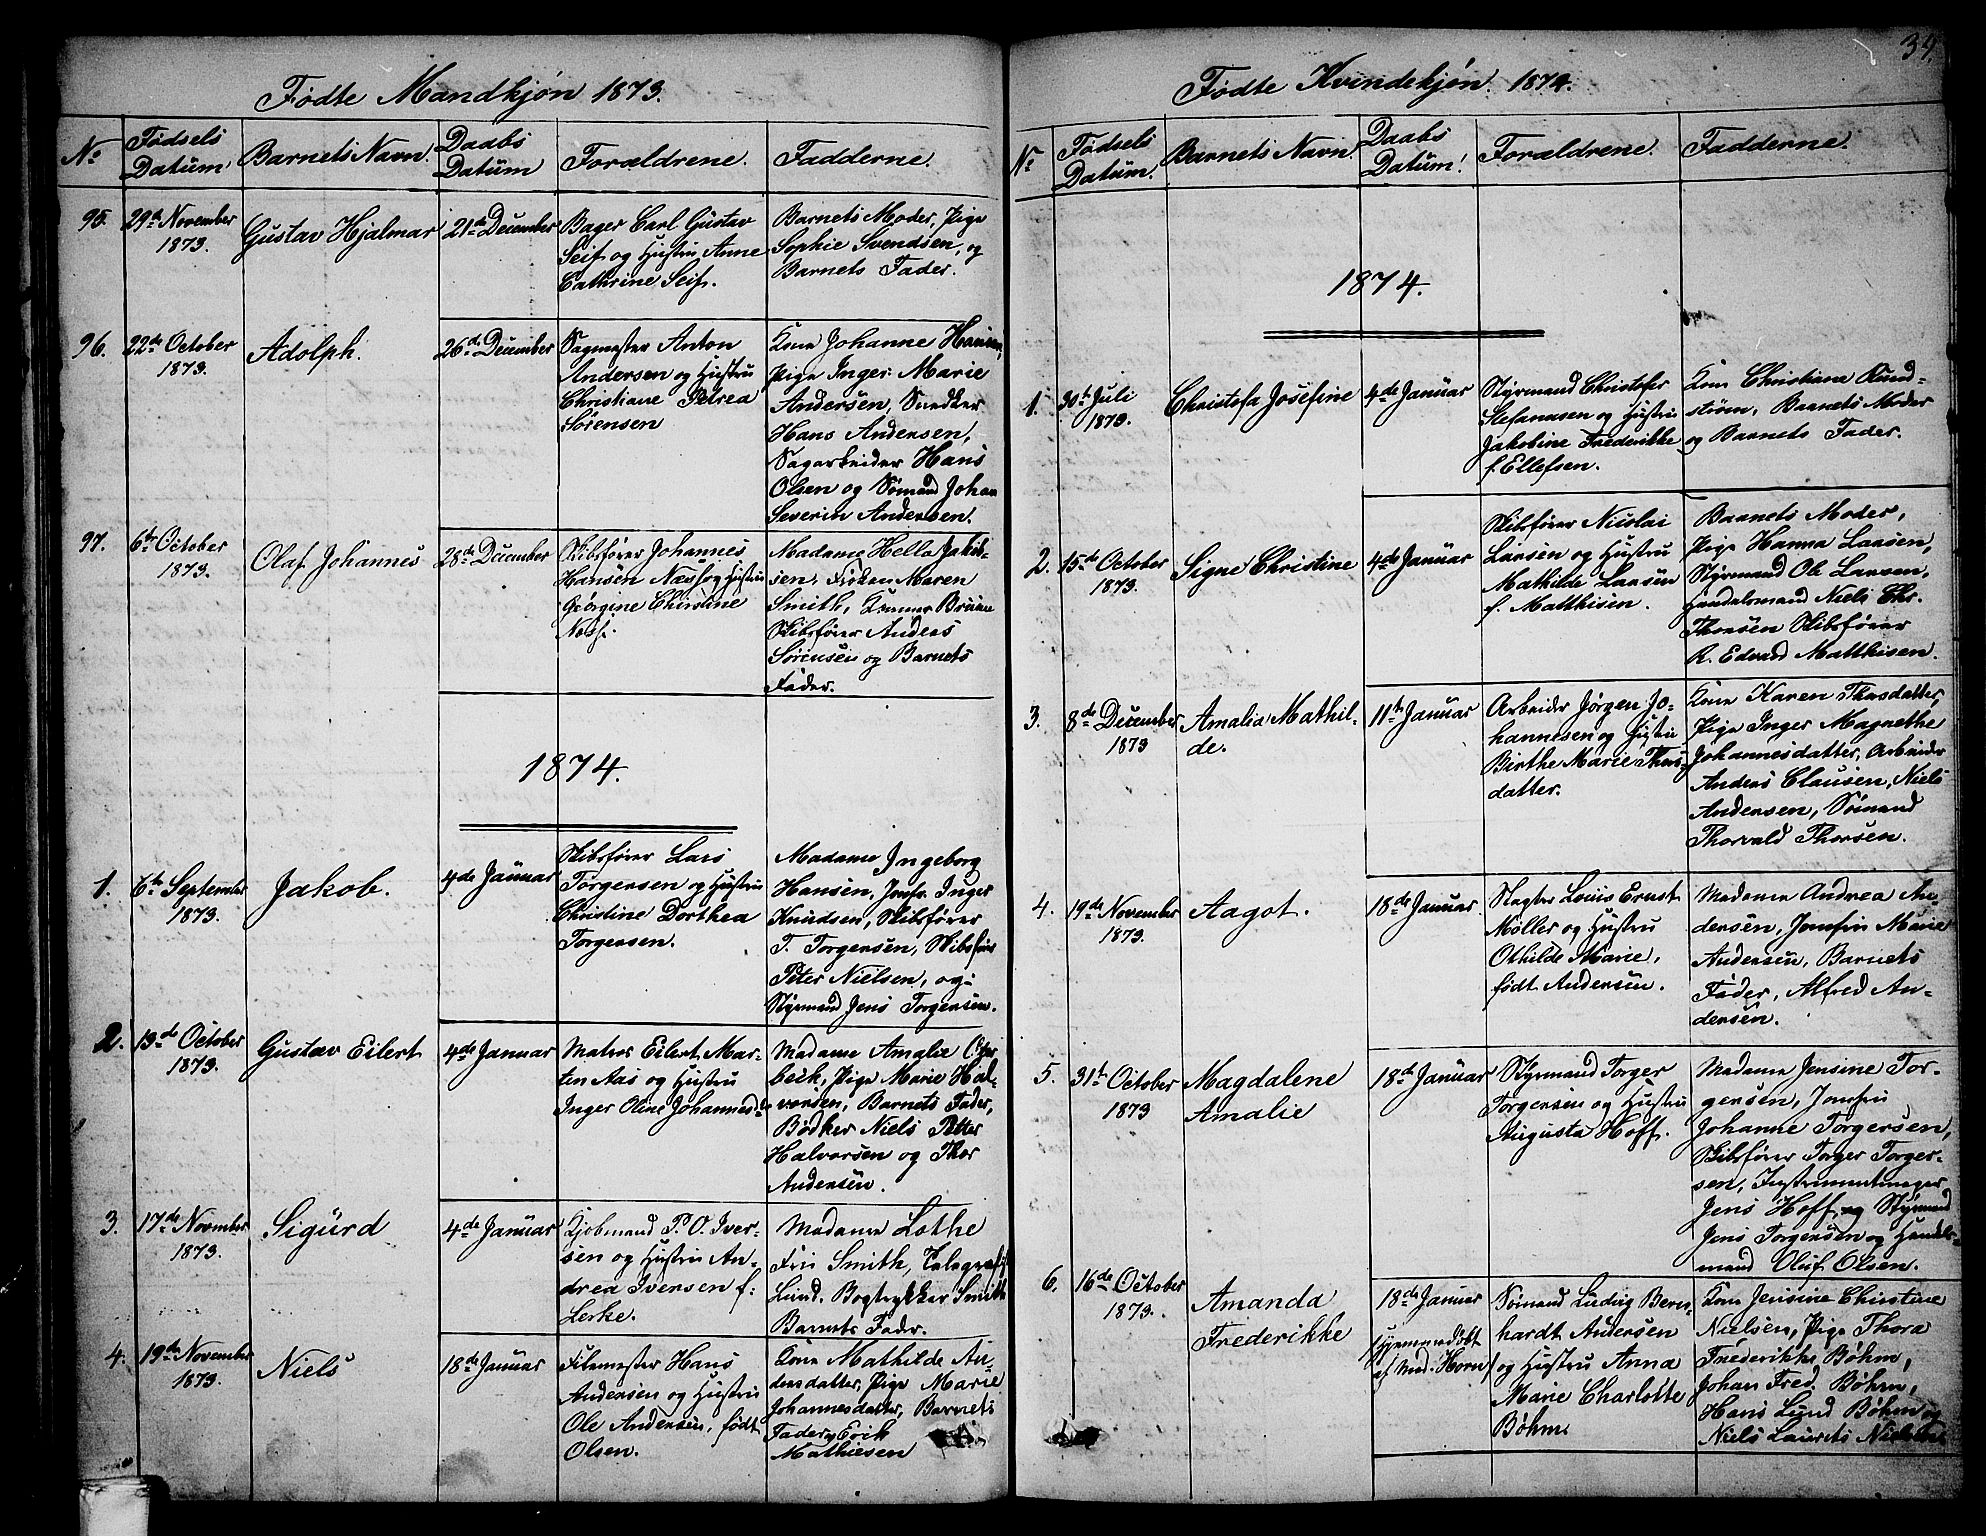 Fødte Mandkjøn 1873.
No
Fødsels Datum.
Barnets Navn.
Daabs Datum
Forældrene.
Fadderne.
95.
29de November
1873.
Gustav Hjalmar
21de December
Bager Carl Gustav
Seif og Hustru Anne
Cathrine Seif.
Barnets Moder, Pige
Sophie Svendsen, og
Barnets Fader.
96.
22de October
1873.
Adolph.
26de December
Sagmester Anton
Andersen og Hustru
Christiane Petrea
Sørensen
Kone Johanne Hansen,
Pige Inger Marie
Andersen, Snedker
Hans Andersen,
Sagarbeider Hans
Olsen og Sømand Johan
Severin Andersen.
97.
6te October
1873.
Olaf Johannes
28de December
Skibsfører Johannes
Hansen Næss og Hustru
Georgine Christine
Næss.
Madame Hella Jakob-
sen, Frøken Maren
Smith, Bruun
Skibsfører Anders
Sørensen og Barnets
Fader.
1874.
1.
6te September
1873.
Jakob.
4de Januar
Skibsfører Lars
Torgersen og Hustru
Christine Dorthea
Torgersen.
Madame Ingeborg
Hansen, Jomfr. Inger
Knudsen, Skibsfører
T. Torgersen, Skibsfører
Peter Nielsen, og
Styrmand Jens Torgersen.
2.
13de October
1873.
Gustav Eilert
4de Januar
Matros Eilert Mar-
ten Aas og Hustru
Inger Oline Johannesd.
Madame Amalie Over-
beck, Pige Marie Hal-
vorsen, Barnets Fader,
Bødker Niels Petter
Halvorsen og Thor
Andersen.
3.
17de November
1873.
Sigurd
4de Januar
Kjøbmand P. O. Iver-
sen og Hustru An-
drea Iversen f.
Lerke.
Madame Lothe
Frk Smith, Telegrafist
Lund, Bogtrykker Smith
Barnets Fader.
4.
19de November
1873.
Niels
18de Januar
Filemester Hans
Andersen og Hustru
Ole Andersen, født
Olsen.
Kone Mathilde An-
dersdatter, Pige Marie
Johannesdatter, Barnets
Fader, Erik
Mathiesen
34.
Fødte Kvindekjøn. 1874.
No
Fødsels Datum.
Barnets Navn.
Daabs Datum.
Forældrene.
Fadderne.
1874.
1.
30te Juli
1873.
Christofa Josefine
4de Januar
Styrmand Christofer
Stefanusen og Hustru
Jakobine Frederikke
f. Ellefsen.
Kone Christiane Rund-
strøm, Barnets Moder
og Barnets Fader.
2.
15de October
1873.
Signe Christine
4de Januar
Skibsfører Nicolai
Larsen og Hustru
Mathilde Larsen
f. Matthisen.
Barnets Moder,
Pige Hanna Larsen,
Styrmand Ole Larsen,
Handelsmand Niels Chr.
Thorsen Skibsfører
R. Edvard Matthisen.
3.
8de December
1873
Amalia Mathil-
de.
11te Januar
Arbeider Jørgen Jo-
hannesen og Hustru
Birthe Marie Thors-
datter.
Kone Karen Thorsdatter,
Pige Inger Magnethe
Johannesdatter, Arbeider
Anders Clausen, Niels
Andersen, Sømand
Thorvald Thorsen.
4.
19de November
1873.
Aagot.
18de Januar
Slagter Louis Ernst
Møller og Hustru
Othilde Marie,
født Andersen.
Madame Andrea An-
dersen, Jomfru Marie
Andersen, Barnets
Fader, Alfred An-
dersen.
5.
31te October
1873
Magdalene
Amalie
18de Januar
Styrmand Torger
Torgersen og Hustru
Augusta Hoff.
Madame Jensine Tor-
gersen, Jomfru
Johanne Torgersen,
Skibsfører Torger Torger-
sen, Instrumentmager
Jens Hoff, og Styrmand
Jens Torgersen og Handels-
mand Oluf Olsen.
6.
16de October
1873.
Amanda
Frederikke
18de Januar
(hjemmedøbt
af Mad. Horn)
Sømand Ludvig Bern-
hardt Andersen
og Hustru Anna
Marie Charlotte
Bøhm
Kone Jensine Christine
Nielsen, Pige Thora
Frederikke Bøhm,
Johan Fred. Bøhm,
Hans Lund Bøhm og
Niels Laurits Nielsen